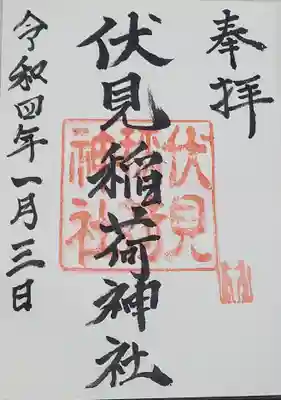 奉拝
伏見稲荷神社
伏見稲荷神社
令和四年一月三日